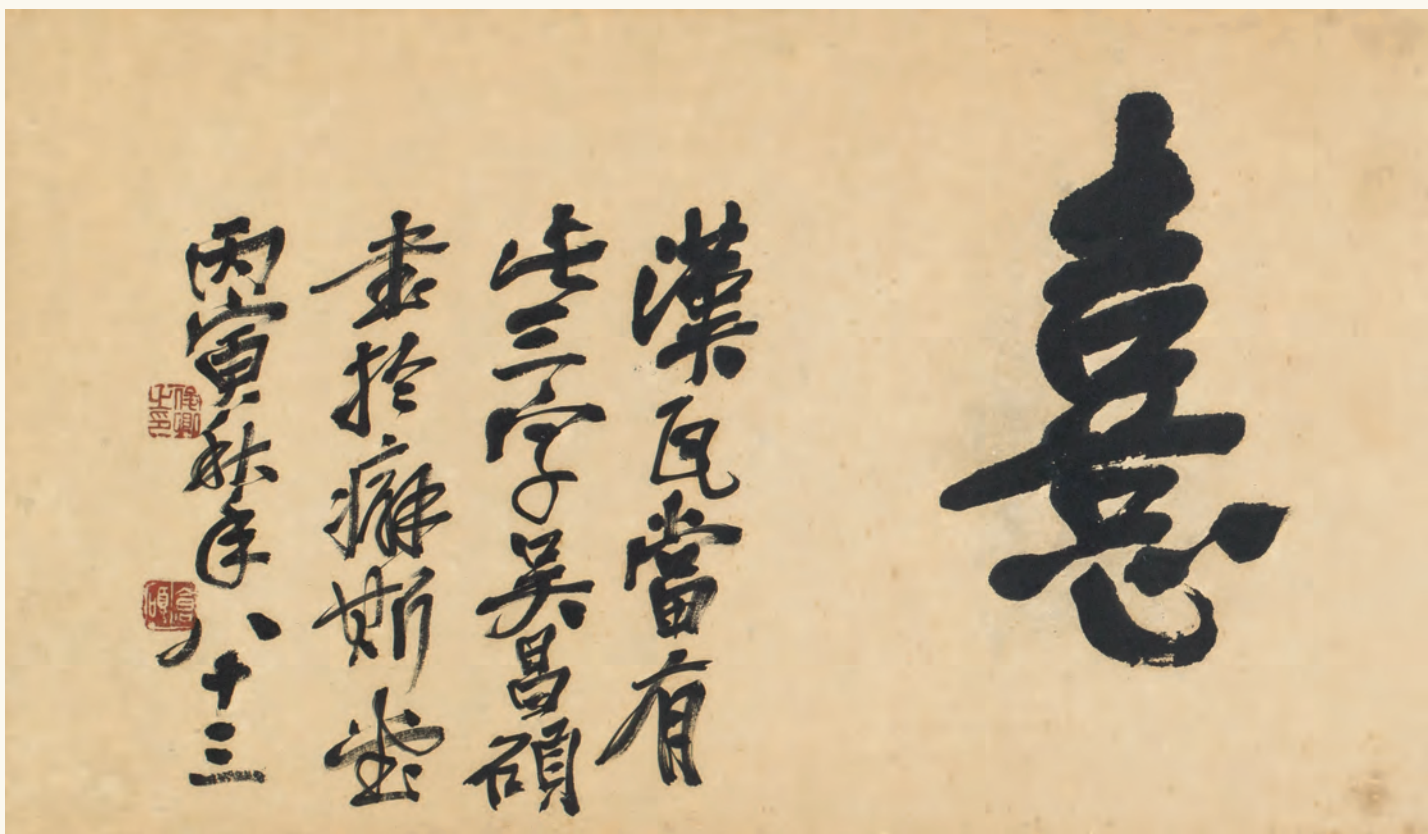 憙
漢瓦當有
此三字吳昌碩
書於癖斯堂
丙寅秋年八十三
俊卿之印
倉碩